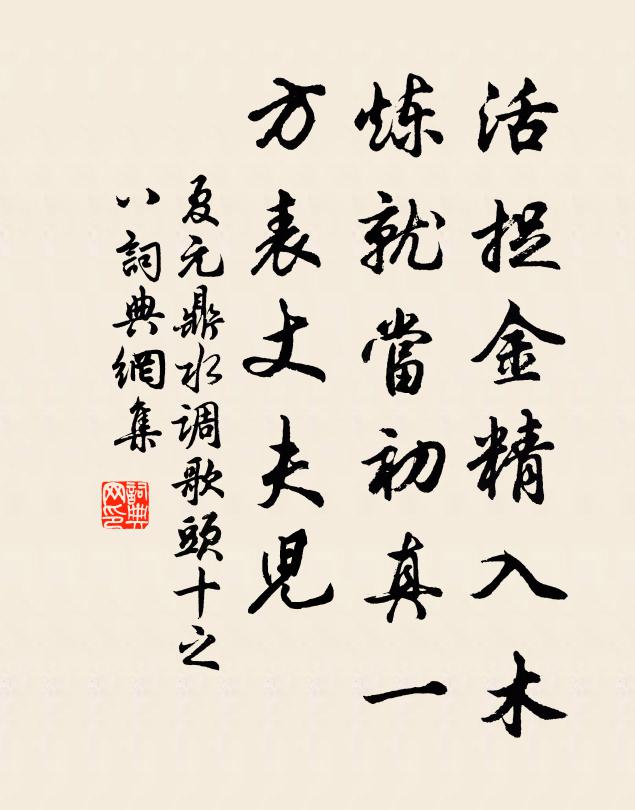 活捉金精入木
炼就當初真一
方表丈夫児
夏元鼎水调歌頭十之
八詞典網集
詞典网印